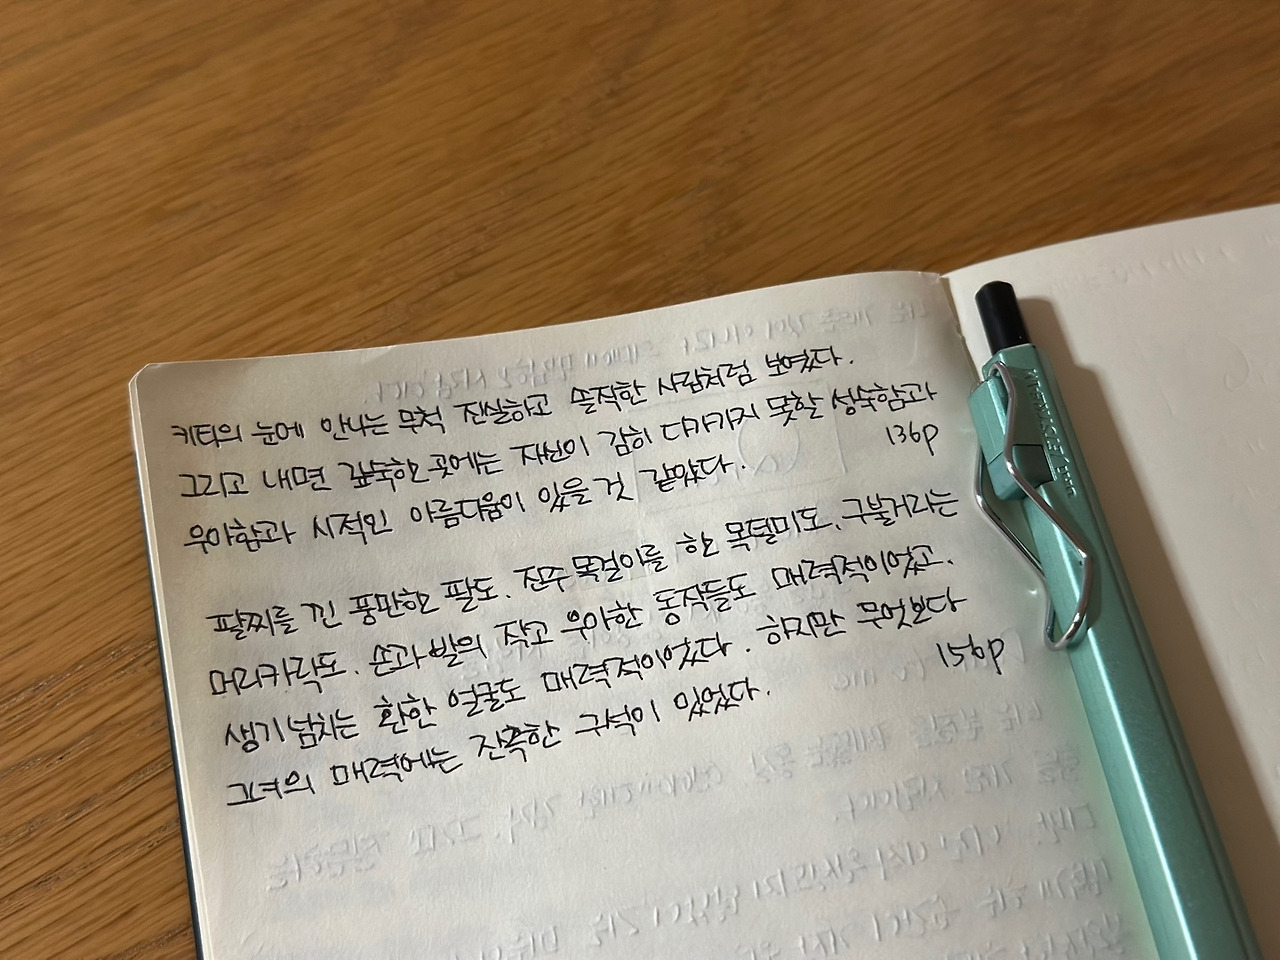 키티의 눈에 안나는 무척 진실하고 솔직한 사람처럼 보였다.
그리고 내면 깊숙한 곳에는 자신이 감히 다가가지 못할 성숙함과
우아함과 시적인 아름다움이 있을 것 같았다.
136p
팔찌를 낀 풍만한 팔도, 진주 목걸이를 한 목덜미도, 구불거리는
머리카락도, 손과 발의 작고 우아한 동작들도 매력적이었고,
생기 넘치는 환한 얼굴도 매력적이었다. 하지만 무엇보다
그녀의 매력에는 잔혹한 구석이 있었다.
156p